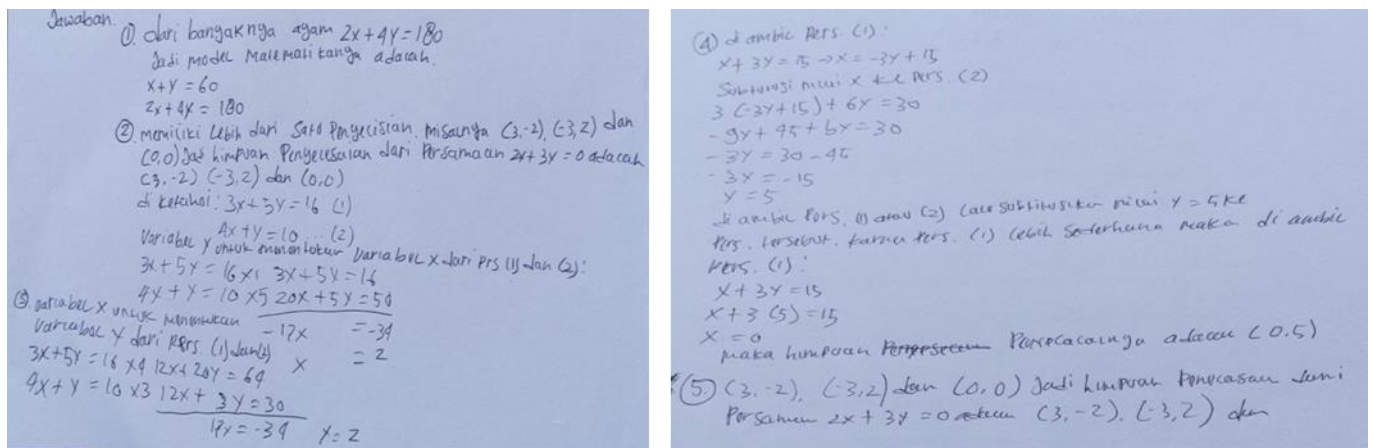 Jawaban.
① dari banyaknya ayam 2x+4y=180
Jadi model Matematikanya adalah.
x+y=60
2x+4y=180
② memiliki lebih dari satu Penyelisian. misalnya (3,-2), (-3,2) dan
(0,0) Jadi himpunan Penyelesaian dari Persamaan 2x+3y=0 adalah
(3,-2) (-3,2) dan (0,0)
di ketahui: 3x+3y=16 (1)
4x+y=10 ... (2)
Variabel y untuk menentukan variabel x dari Prs (1) dan (2):
3x+5y=16 x1 3x+5y=16
4y+y=10 x5 20x+5y=50
-17x =-34
x =2
③ variabel x untuk menentukan
variabel y dari Pers. (1) dan (2)
3x+5y=16 x4 12x+20y=64
4x+y=10 x3 12x+3y=30
17x=-34 y=2
④ di ambil Pers. (1):
x+3y=15 → x=-3y+15
Subtitusi nilai x ke Pers. (2)
3(-3y+15)+6y=30
-9y+45+6y=30
-3y=30-45
-3x=-15
y=5
di ambil Pers. (1) atau (2) lalu subtitusikan nilai y=5 ke
Pers. tersebut. karna Pers. (1) lebih sederhana maka di ambil
Pers. (1):
x+3y=15
x+3(5)=15
x=0
maka himpunan adalah (0.5)
⑤ (3,-2), (-3,2) dan (0,0) Jadi himpunan
Persamaan 2x+3y=0 (3,-2). (-3,2) dan